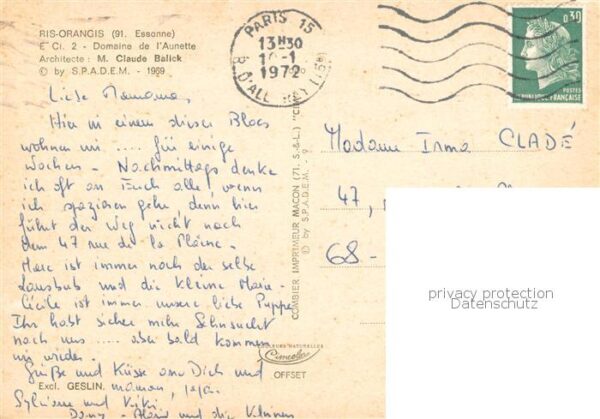 RIS-ORANGIS (91. Essonne)
E Cl. 2 - Domaine de l'Aunette
Architecte : M. Claude Balick
© by S.P.A.D.E.M. - 1969
PARIS 15
13H30
10-1
1972
B
0,30
POSTES
RÉPUBLIQUE FRANÇAISE
Liebe Mamama,
Hier in einem dieser Blocs
wohnen wir .... für einige
Wochen - Nachmittags denke
ich oft an Euch alle, wenn
ich spazieren gehe, denn hier
führt der Weg nicht nach
dem 47 rue de la Plaine.
Marc ist immer noch der selbe
Lausbub und die kleine Marie-
Cécile ist immer unsere liebe Puppe
Ihr habt sicher mehr Sehnsucht
nach uns .... aber bald kommen
wir wieder.
Grüße und Küsse an Dich und
maman, papa,
Sylviane und Kiki
Dany - und die Kleinen
Excl. GESLIN.
COMBIER IMPRIMEUR MACON (71. S.-&-L.) "CIM"
© by S.P.A.D.E.M.
COULEURS NATURELLES
Cimcolor
OFFSET
Madame Irma CLADÉ
47,
68-
privacy protection
Datenschutz